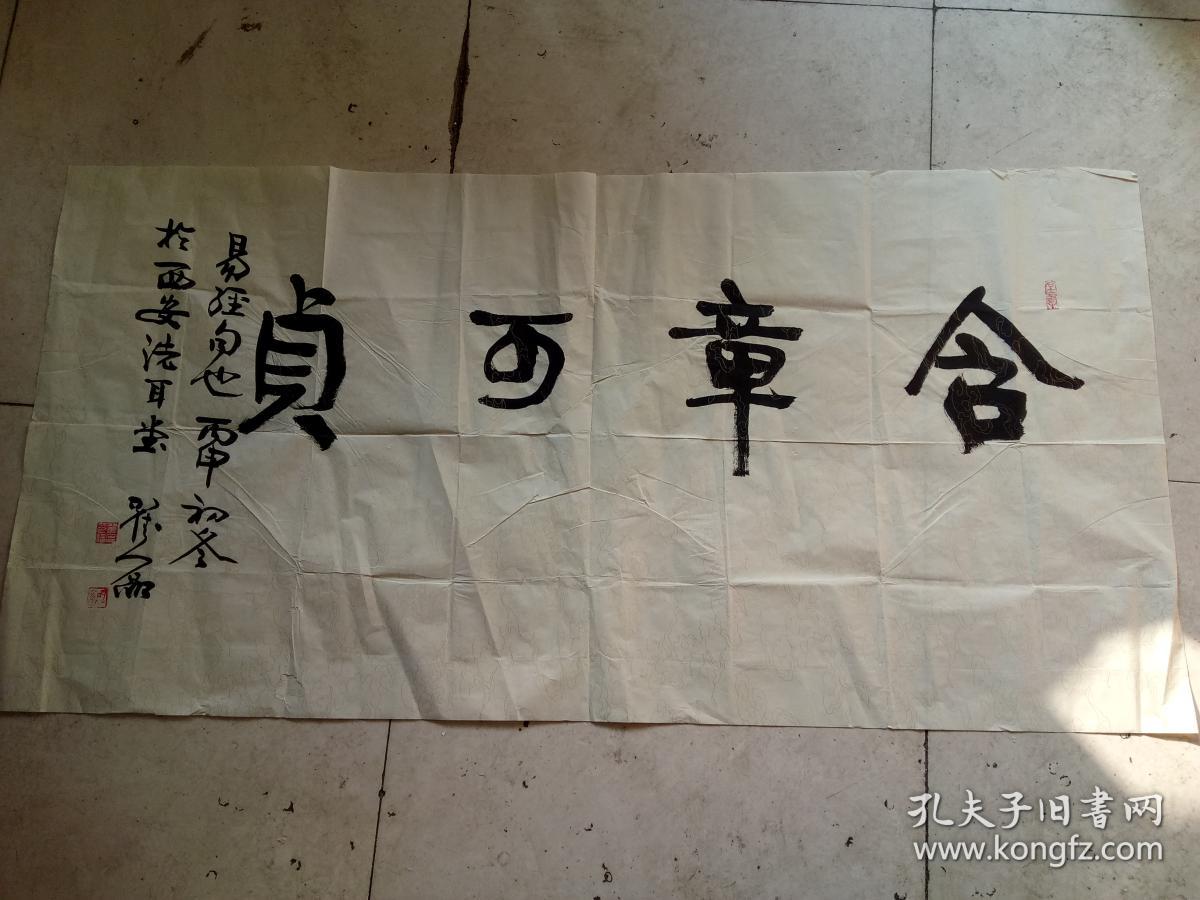 含章可貞
易經句也 丙申 初冬
於西安洗耳堂
孔夫子旧書网
www.kongfz.com